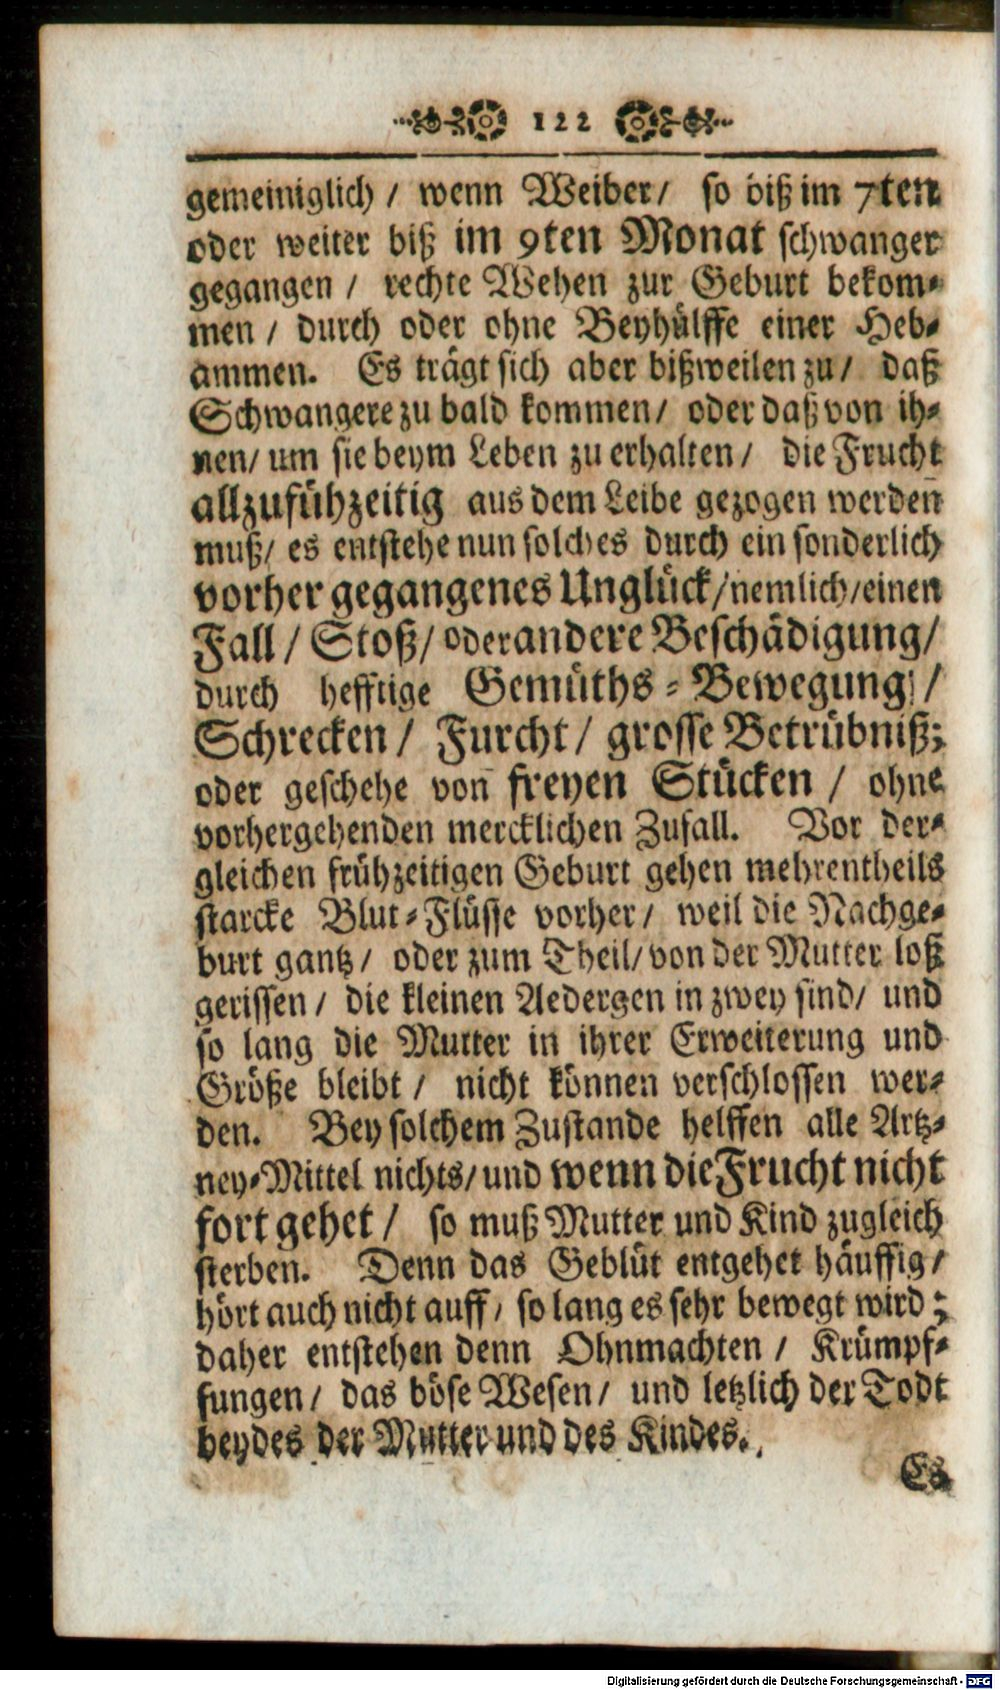 122
gemeiniglich / wenn Weiber / so biß im 7ten
oder weiter biß im 9ten Monat schwanger
gegangen / rechte Wehen zur Geburt bekom-
men / durch oder ohne Beyhülffe einer Heb-
ammen. Es trägt sich aber bißweilen zu / daß
Schwangere zu bald kommen / oder daß von ih-
nen / um sie beym Leben zu erhalten / die Frucht
allzufühzeitig aus dem Leibe gezogen werden
muß / es entstehe nun solches durch ein sonderlich
vorher gegangenes Unglück / nemlich / einen
Fall / Stoß / oder andere Beschädigung /
durch hefftige Gemüths-Bewegung /
Schrecken / Furcht / grosse Betrübniß;
oder geschehe von freyen Stücken / ohne
vorhergehenden mercklichen Zufall. Vor der-
gleichen frühzeitigen Geburt gehen mehrentheils
starcke Blut-Flüsse vorher / weil die Nachge-
burt gantz / oder zum Theil / von der Mutter loß
gerissen / die kleinen Aedergen in zwey sind / und
so lang die Mutter in ihrer Erweiterung und
Größe bleibt / nicht können verschlossen wer-
den. Bey solchem Zustande helffen alle Artz-
ney-Mittel nichts / und wenn die Frucht nicht
fort gehet / so muß Mutter und Kind zugleich
sterben. Denn das Geblüt entgehet häuffig /
hört auch nicht auff / so lang es sehr bewegt wird;
daher entstehen denn Ohnmachten / Krümpf-
fungen / das böse Wesen / und letzlich der Todt
beydes der Mutter und des Kindes.
Es
Digitalisierung gefördert durch die Deutsche Forschungsgemeinschaft - DFG